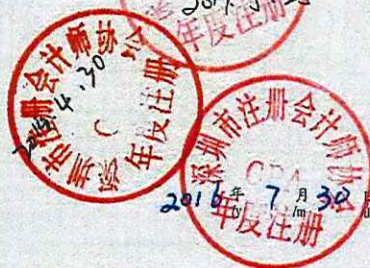 年度注册
深圳市注册会计师协会
年度注册
深圳市注册会计师协会
CPA
2016 年 7 月 30 日
/y /m /d
年度注册